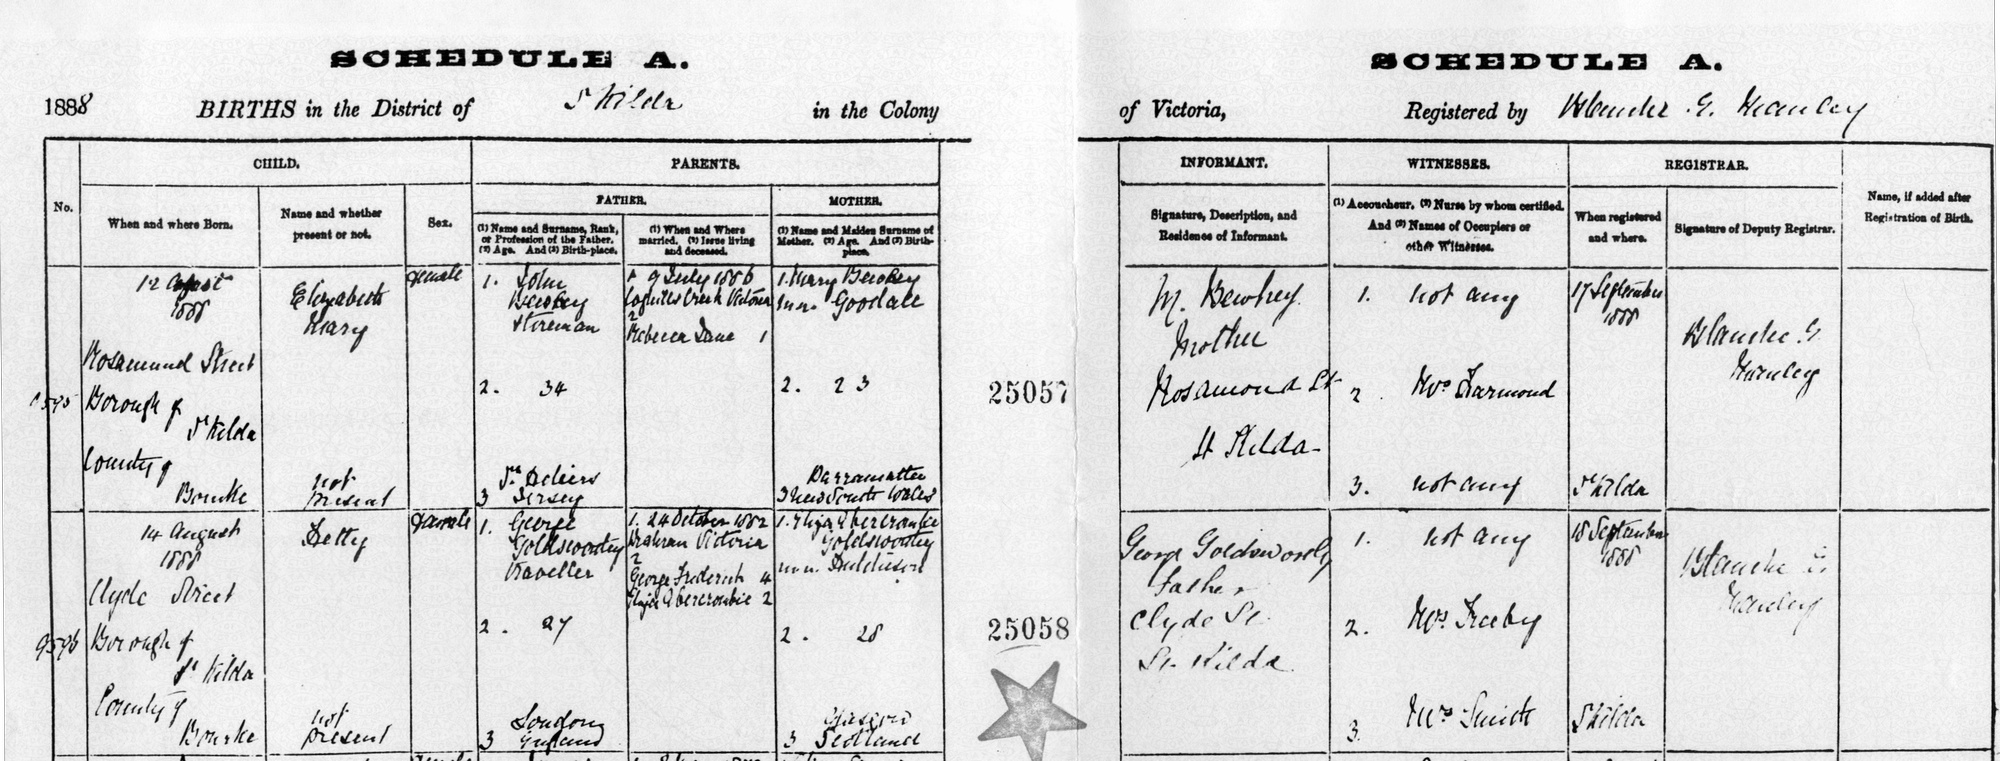 SCHEDULE A.
SCHEDULE A.
1888 BIRTHS in the District of St Kilda in the Colony
of Victoria, Registered by Blanche G. Manley
No.
CHILD.
When and where Born.
Name and whether
present or not.
Sex.
PARENTS.
FATHER.
(1) Name and Surname, Rank,
or Profession of the Father.
(2) Age. And (3) Birth-place.
(1) When and Where
married. (2) Issue living
and deceased.
MOTHER.
(1) Name and Maiden Surname of
Mother. (2) Age. And (3) Birth-
place.
INFORMANT.
Signature, Description, and
Residence of Informant.
WITNESSES.
(1) Accoucheur. (2) Nurse by whom certified.
And (3) Names of Occupiers or
other Witnesses.
REGISTRAR.
When registered
and where.
Signature of Deputy Registrar.
Name, if added after
Registration of Birth.
12 August
1888
Rosamund Street
Borough of
St Kilda
County of
Bourke
Elizabeth
Mary
not
present
female
1. John
Bewhey
2. 34
St Heliers
3 Jersey
1 9 July 1886
Creek Victoria
2
Rebecca Jane 1
1. Mary Bewhey
Goodall
2. 23
Parramatta
3 New South Wales
25057
M. Bewhey
Mother
Rosamond St
St Kilda
1. not any
2. Mrs Harmond
3. not any
17 September
1888
St Kilda
Blanche G.
Manley
9596
14 August
1888
Clyde Street
Borough of
St Kilda
County of
Bourke
Hetty
not
present
female
1. George
Goldsworthy
Traveller
2. 27
London
3 England
1. 24 October 1882
Prahran Victoria
2
George Frederick 4
Eliza Abercrombie 2
1. Eliza Abercrombie
Goldsworthy
Hutchison
2. 28
Glasgow
3 Scotland
25058
George Goldsworthy
Father
Clyde St.
St. Kilda
1. not any
2. Mrs
3. Mrs Smith
18 September
1888
St Kilda
Blanche G.
Manley
female